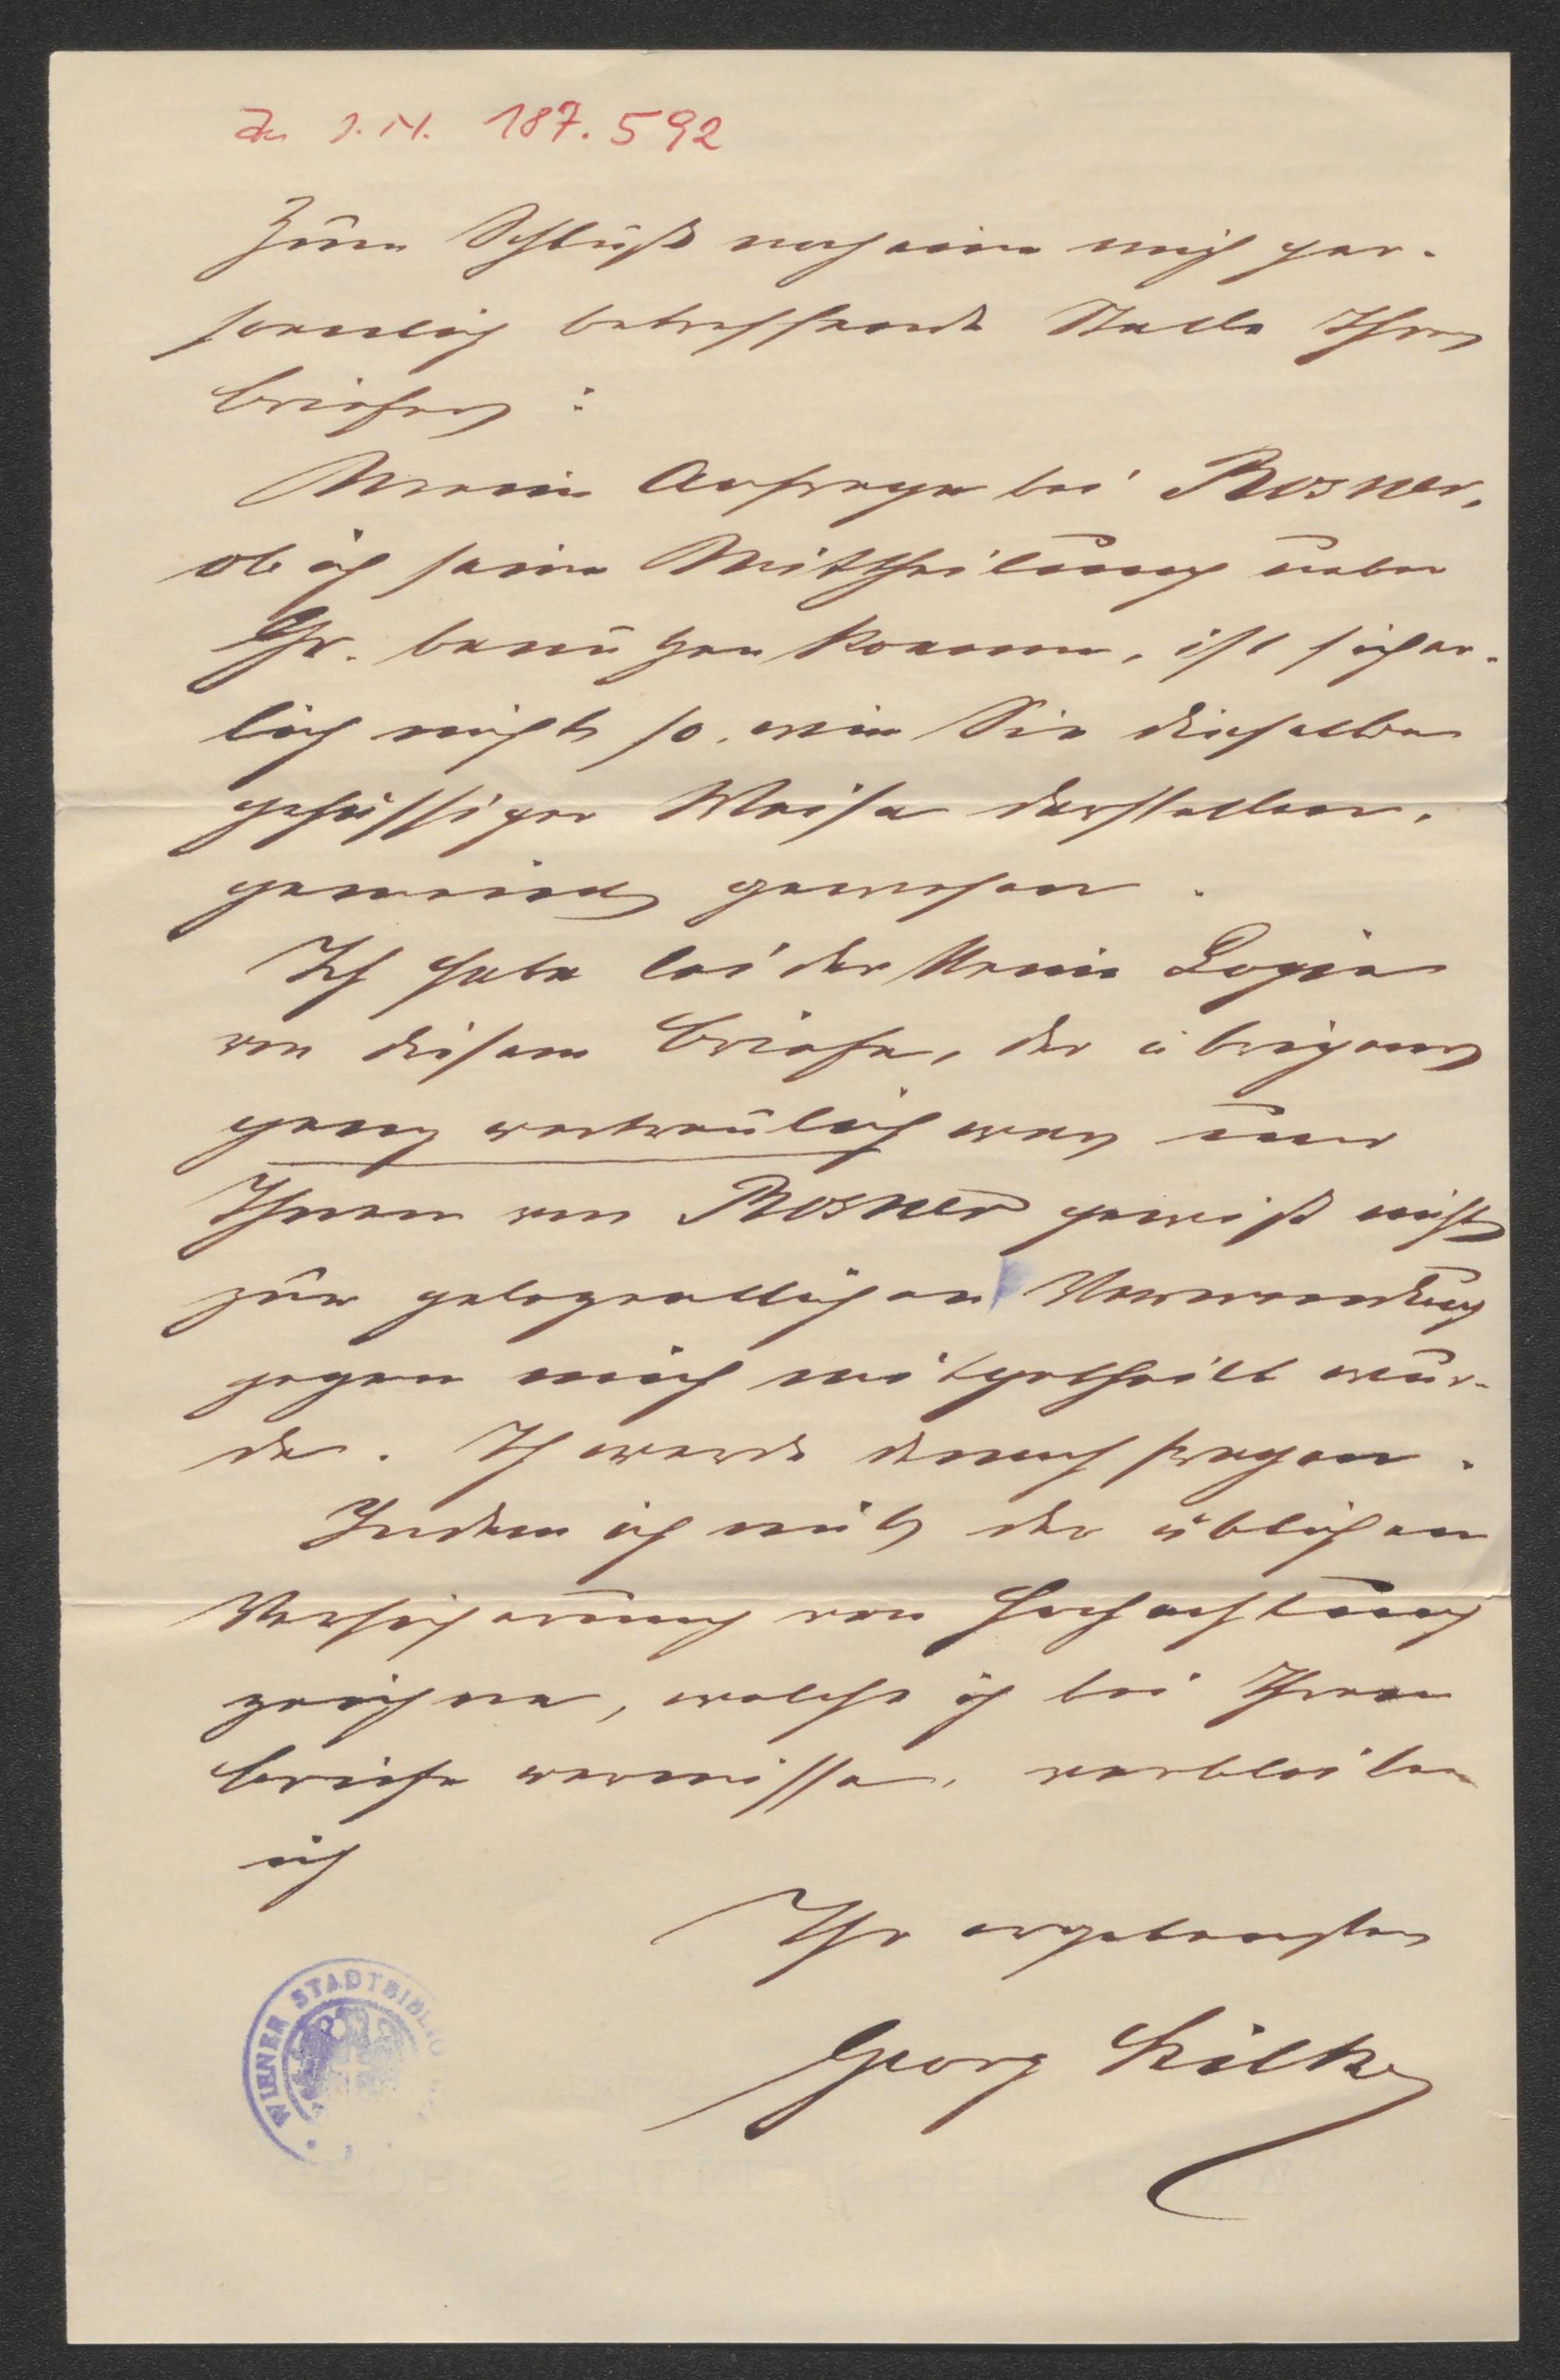 Zu I.N. 187.592
Zum Schluß noch eine mich per-
soenlich betreffende Stelle Ihres
Briefes:
Meine Anfrage bei Rosner,
ob ich seine Mittheilung ueber
Gr. benützen koenne, ist sicher-
lich nicht so, wie Sie dieselbe
gehässiger Weise darstellen,
gemeint gewesen.
Ich habe leider keine Copie
von diesem Briefe, der übrigens
ganz vertraulich war und
Ihnen von Rosner gewiß nicht
zur gelegentlichen Verwendung
gegen mich mitgetheilt wur-
de. Ich werde darnach fragen.
Indem ich mit der üblichen
Versicherung von Hochachtung
zeichne, welche ich bei Ihrem
Briefe vermisse, verbleibe
ich
Ihr ergebenster
Georg
WIENER STADTBIBLIO